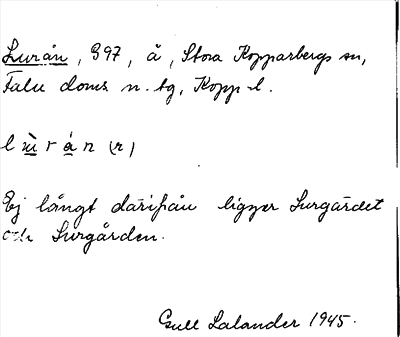 Lurån, 397, å, Stora Kopparbergs sn,
Falu doms. n. tg, Kopp. l.
l ù r á n (r)
Ej långt därifrån ligger Lurgärdet
och Lurgården.
Gull Lalander 1945.